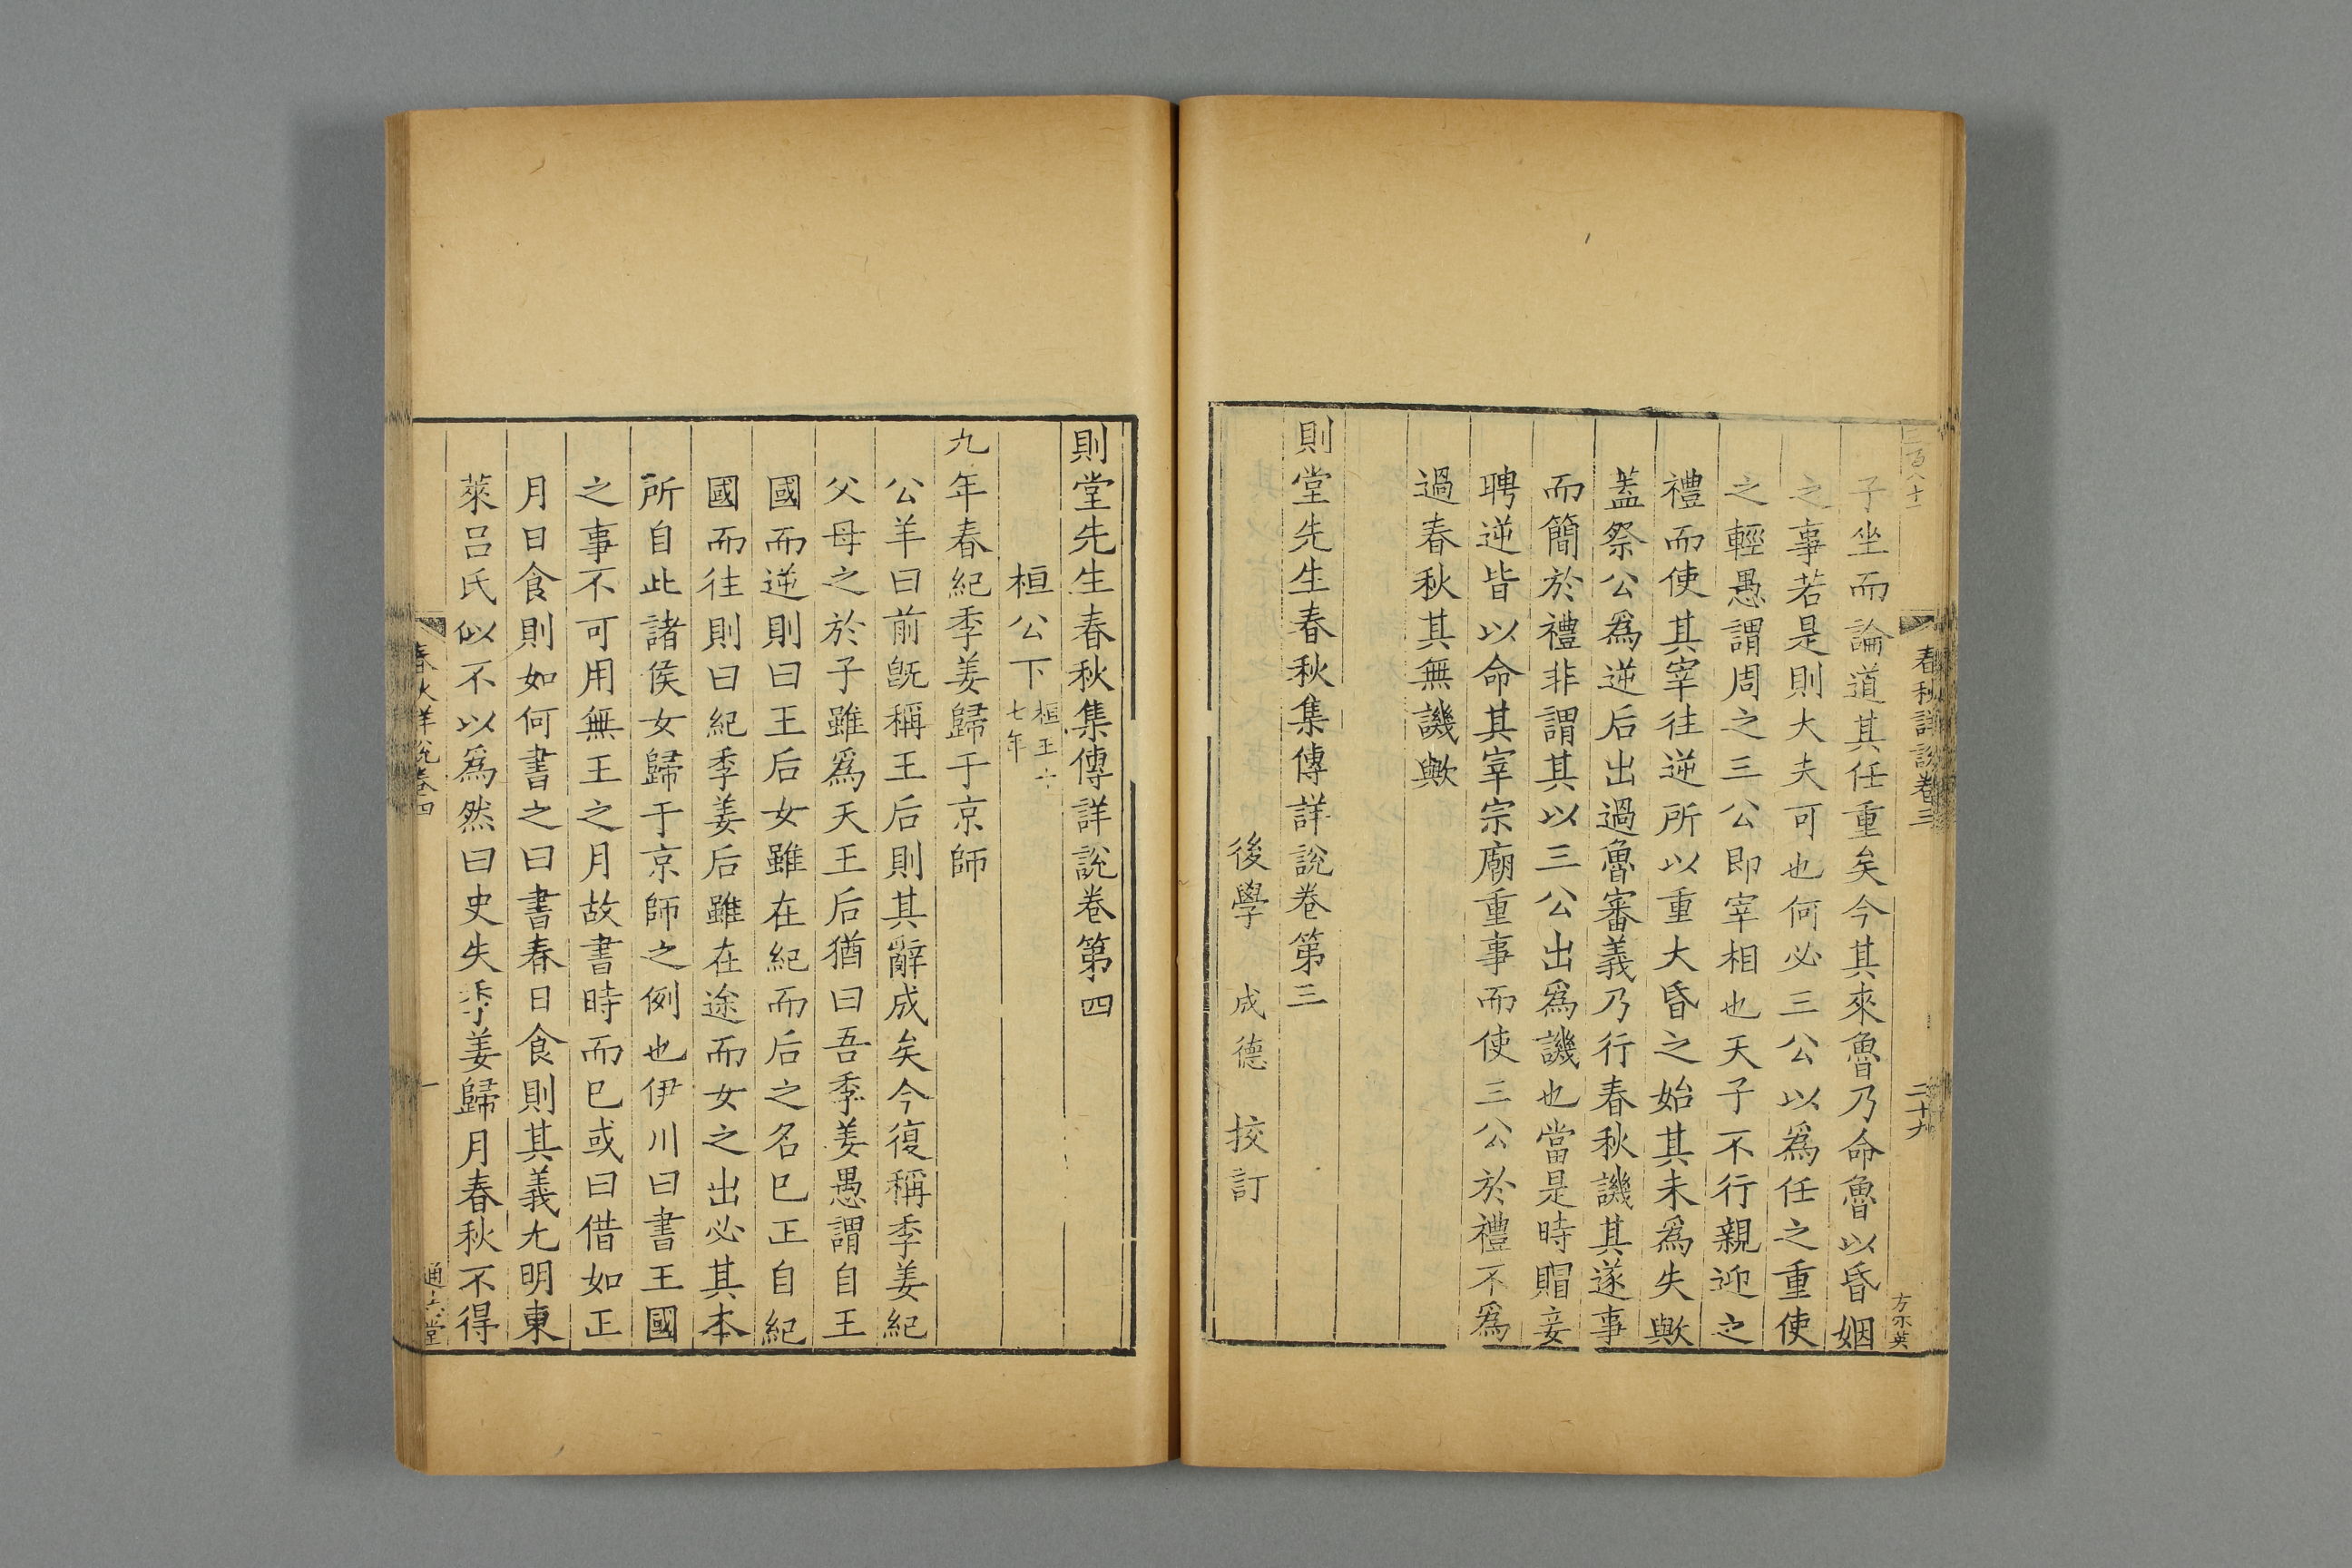 春秋詳說卷三
二十九
子坐而論道其任重矣今其來魯乃命魯以昏姻
之事若是則大夫可也何必三公以爲任之重使
之輕愚謂周之三公即宰相也天子不行親迎之
禮而使其宰往逆所以重大昏之始其未爲失歟
蓋祭公爲逆后出過魯審義乃行春秋譏其遂事
而簡於禮非謂其以三公出爲譏也當是時賵妾
聘逆皆以命其宰宗廟重事而使三公於禮不爲
過春秋其無譏歟
則堂先生春秋集傳詳說卷第三
後學 成德 挍訂
則堂先生春秋集傳詳說卷第四
桓公下 桓王十
七年
九年春紀季姜歸于京師
公羊曰前旣稱王后則其辭成矣今復稱季姜紀
父母之於子雖爲天王后猶曰吾季姜愚謂自王
國而逆則曰王后女雖在紀而后之名已正自紀
國而往則曰紀季姜后雖在途而女之出必其本
所自此諸侯女歸于京師之例也伊川曰書王國
之事不可用無王之月故書時而已或曰借如正
月日食則如何書之曰書春日食則其義尢明東
萊呂氏似不以爲然曰史失季姜歸月春秋不得
春秋詳說卷四
一
通志堂